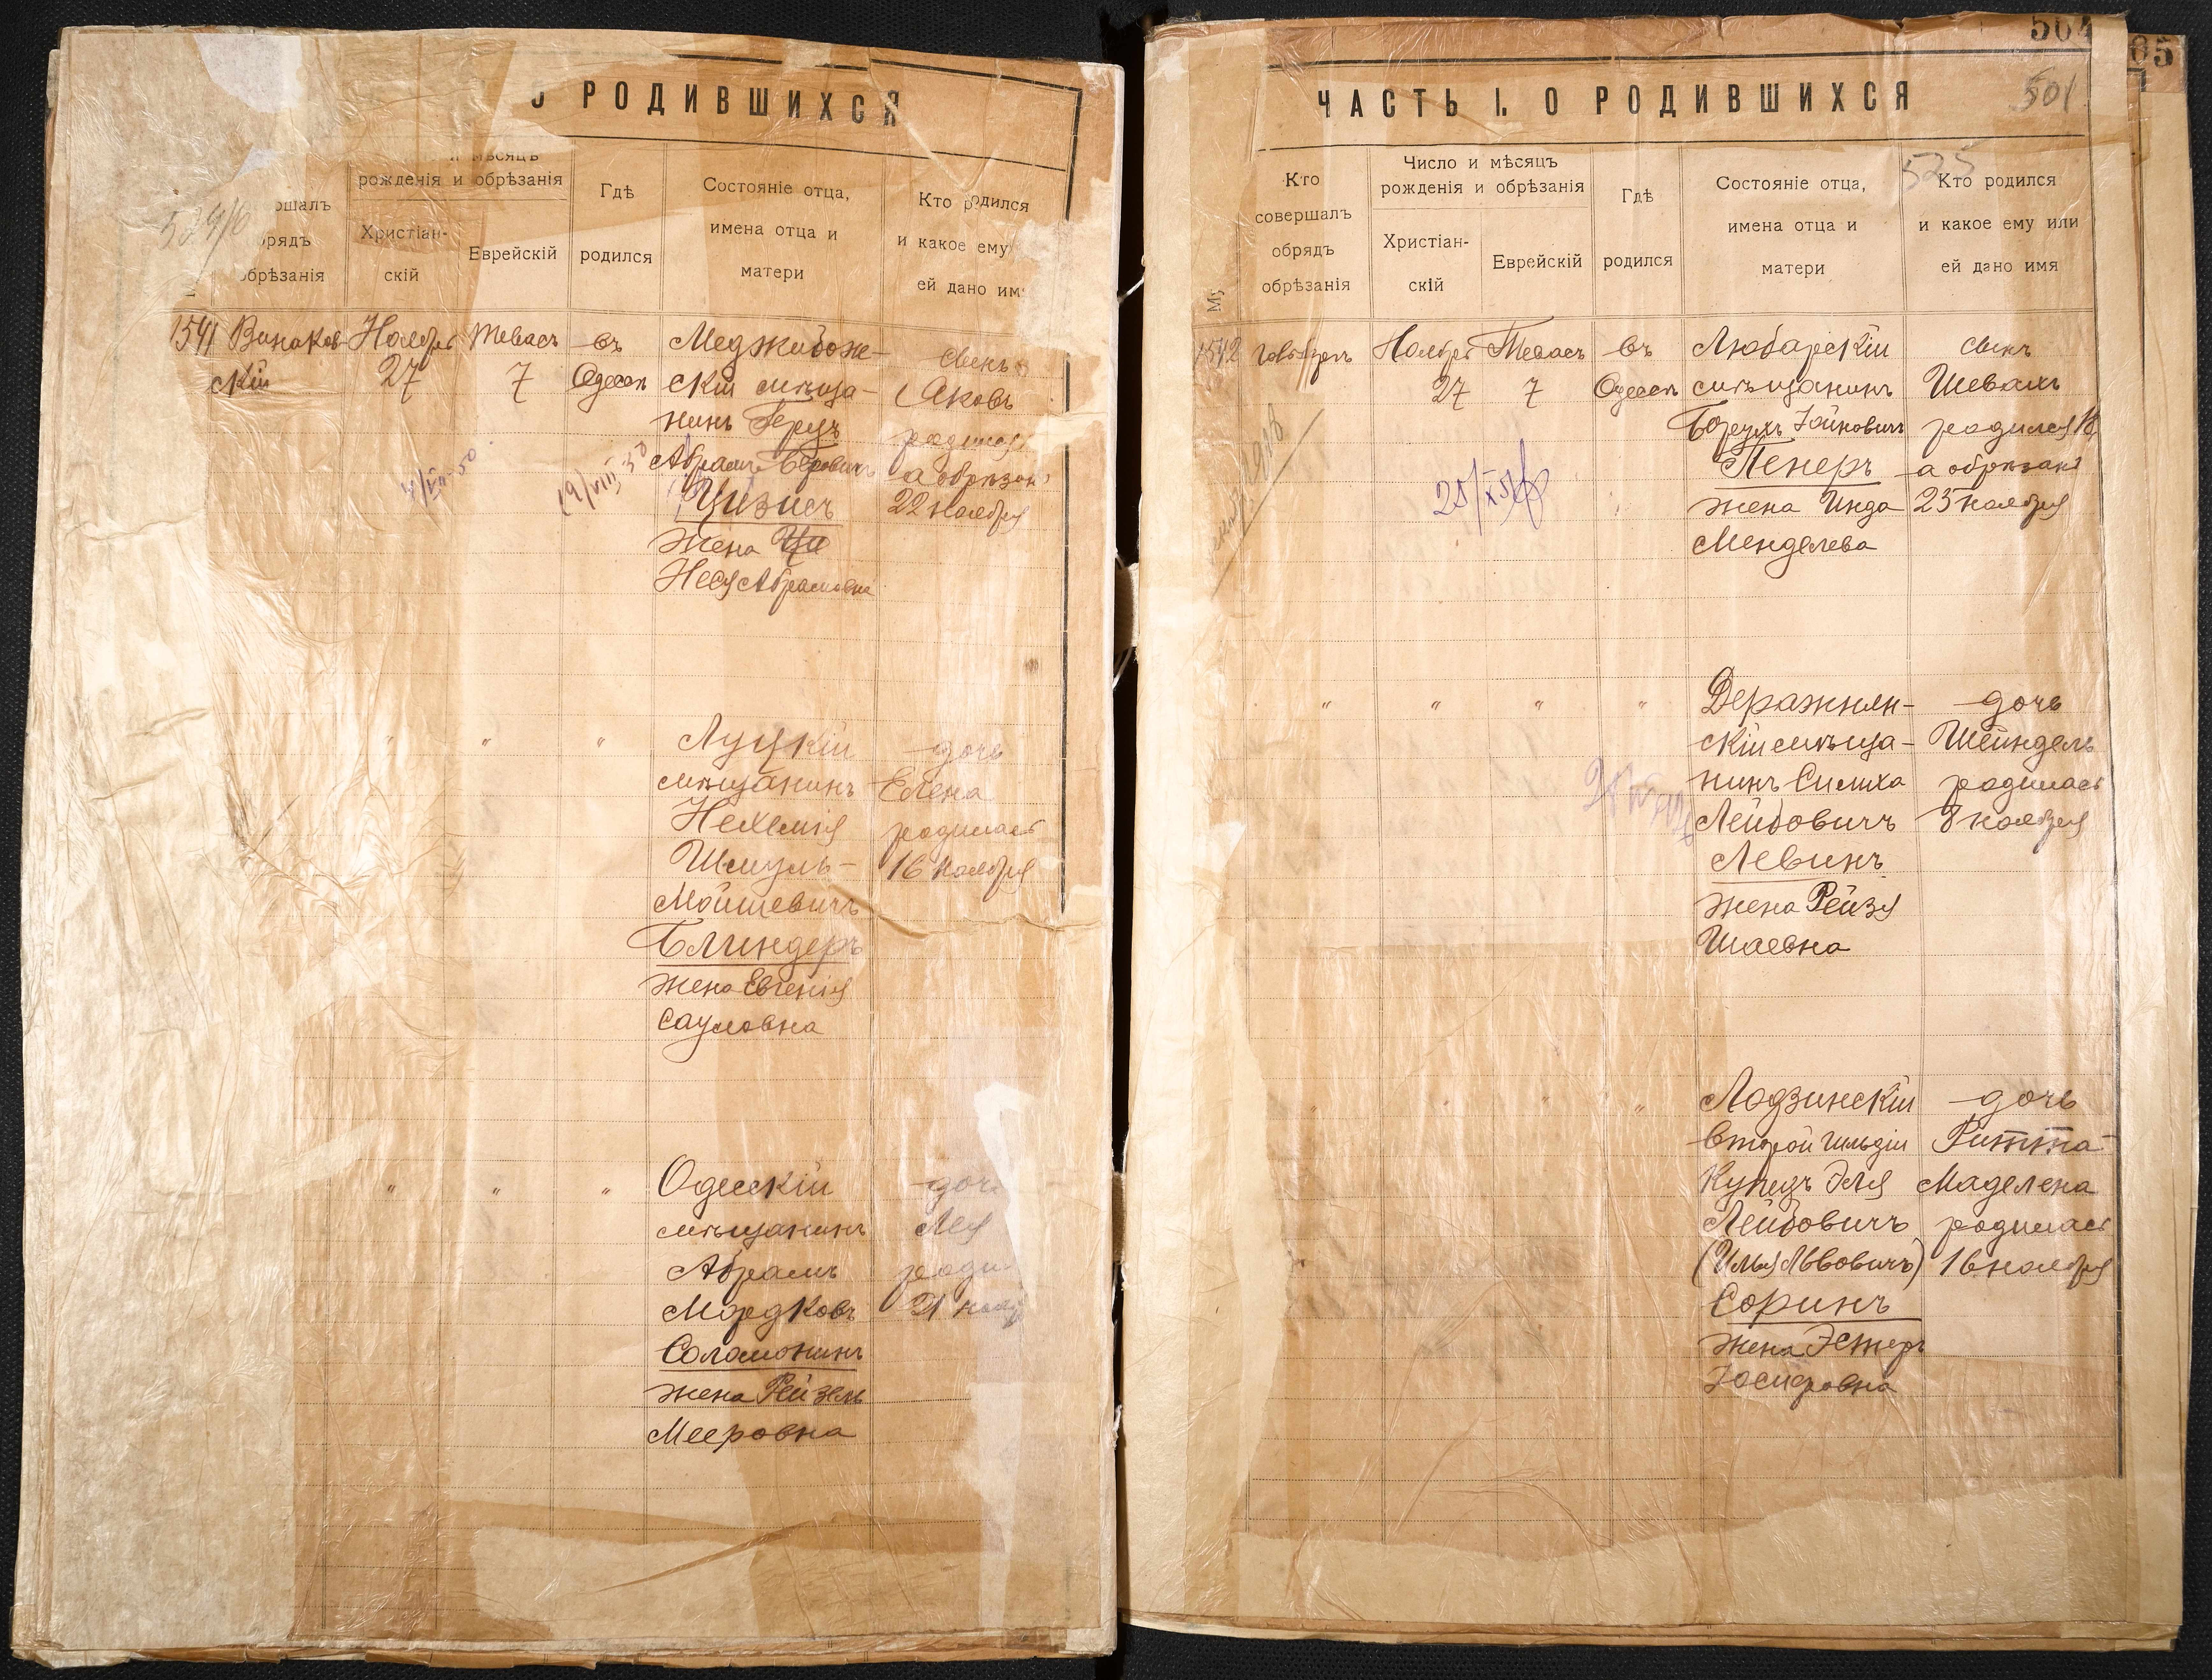 О РОДИВШИХСЯ
и мѣсяцъ
рожденія и обрѣзанія
обрядъ
обрѣзанія
Христіан-
скій
Еврейскій
Гдѣ
родился
Состояніе отца,
имена отца и
матери
Кто родился
и какое ему
ей дано им
1541
Винаков-
скій
Ноября
27
Тевасъ
7
въ
Одессѣ
Меджибож-
скій мѣща-
нинъ Герцъ
Абрамъ Беровичъ
Цизисъ
жена
Неся Абрамовна
сынъ
Яковъ
родился
а обрѣзанъ
22 ноября
4/VII-50
19/VIII 30
" " "
Луцкій
мѣщанинъ
Нехемія
Шмуль-
Мойшевичъ
Блиндеръ
жена Евгенія
Сауловна
дочь
Елена
родилась
16 ноября
" " "
Одесскій
мѣщанинъ
Абрамъ
Мордковъ
Соломонинъ
жена Рейзель
Мееровна
доч
Лея
роди
21 нояб
504
05
ЧАСТЬ I. О РОДИВШИХСЯ
501
525
Кто
совершалъ
обрядъ
обрѣзанія
Число и мѣсяцъ
рожденія и обрѣзанія
Христіан-
скій
Еврейскій
Гдѣ
родился
Состояніе отца,
имена отца и
матери
Кто родился
и какое ему или
ей дано имя
1542
Ноября
27
Тевасъ
7
въ
Одессѣ
Любарскій
мѣщанинъ
Борухъ Іойновичъ
Пенеръ
жена Инда
Менделева
сынъ
Шевахъ
родился 16
а обрѣзанъ
23 ноября
" " " "
Деражнян-
скій мѣща-
нинъ Симха
Лейбовичъ
Левинъ
жена Рейзя
Шаевна
дочь
Шейндель
родилась
8 ноября
" " " "
Лодзинскій
второй гильдіи
купецъ Эля
Лейбовичъ
(Илья Львовичъ)
Соринъ
жена Эстеръ
Іосифовна
дочь
Ритта-
Маделена
родилась
16 ноября